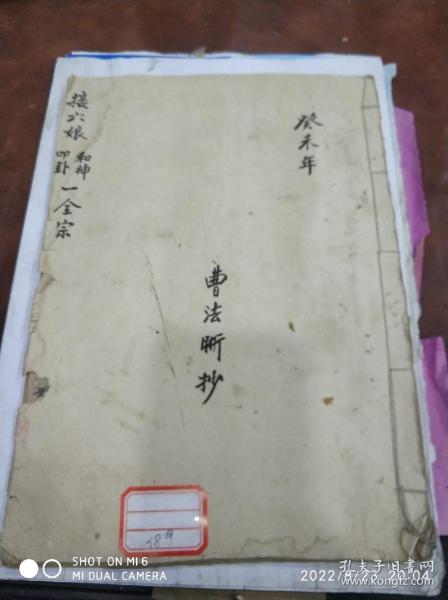 癸未年
曹法昕抄
接六娘 和神 叩卦 一全宗
58#
SHOT ON MI 6
MI DUAL CAMERA
孔夫子旧书网
www.kongfz.com